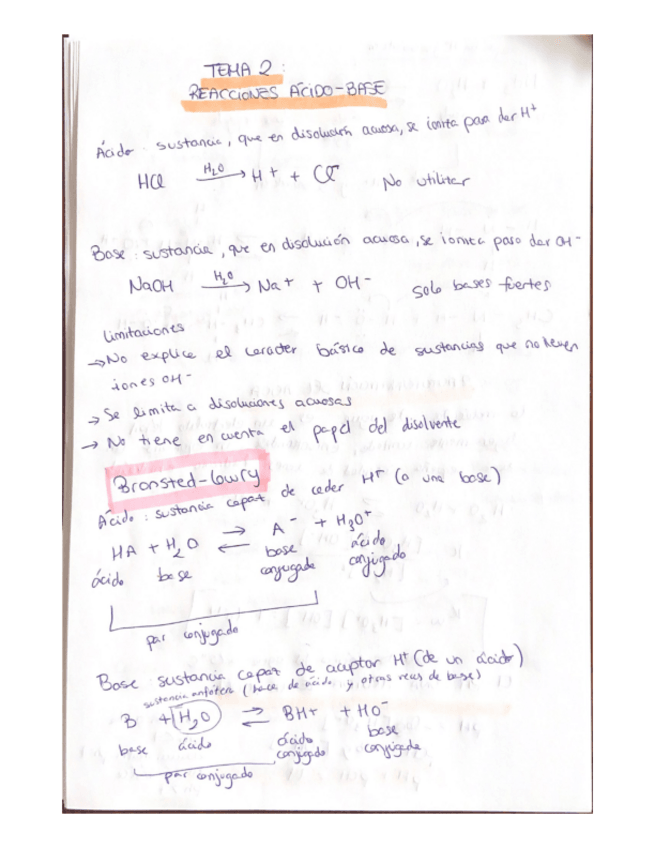 TEMA 2:
REACCIONES ÁCIDO-BASE
Ácido: sustancia, que en disolución acuosa, se ioniza para dar H+
HCl H2O → H+ + Cl- No utilizar
Base: sustancia, que en disolución acuosa, se ioniza para dar OH-
NaOH H2O → Na+ + OH- solo bases fuertes
limitaciones
→ No explica el carácter básico de sustancias que no tienen
iones OH-
→ Se limita a disoluciones acuosas
→ No tiene en cuenta el papel del disolvente
Bronsted-lowry
Ácido: sustancia capaz de ceder H+ (a una base)
HA + H2O ⇌ A- + H3O+
ácido base base conjugada ácido conjugado
par conjugado
Base: sustancia capaz de aceptar H+ (de un ácido)
sustancia anfótera (hace de ácido y otras veces de base)
B + H2O ⇌ BH+ + HO-
base ácido ácido conjugado base conjugada
par conjugado